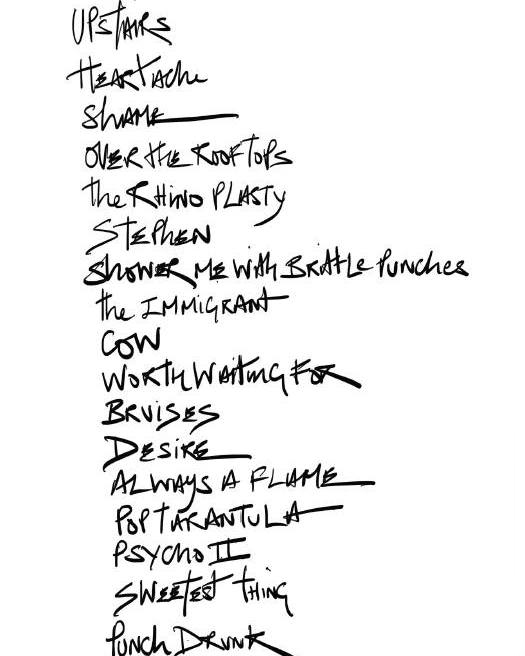 UPstAiRS
HEARTAche
SHAME
OVER the ROOFTOPS
the RHiNO PLASTY
STEPHEN
SHOWER ME With BRittLE PUNches
the IMMIGRANT
COW
WORTH WAitiNG FOR
BRUiSES
DESiRE
ALWAYS A FLAME
POP TARANTULA
PSYCHO II
SWEETEST THING
PUNCH DRUNK